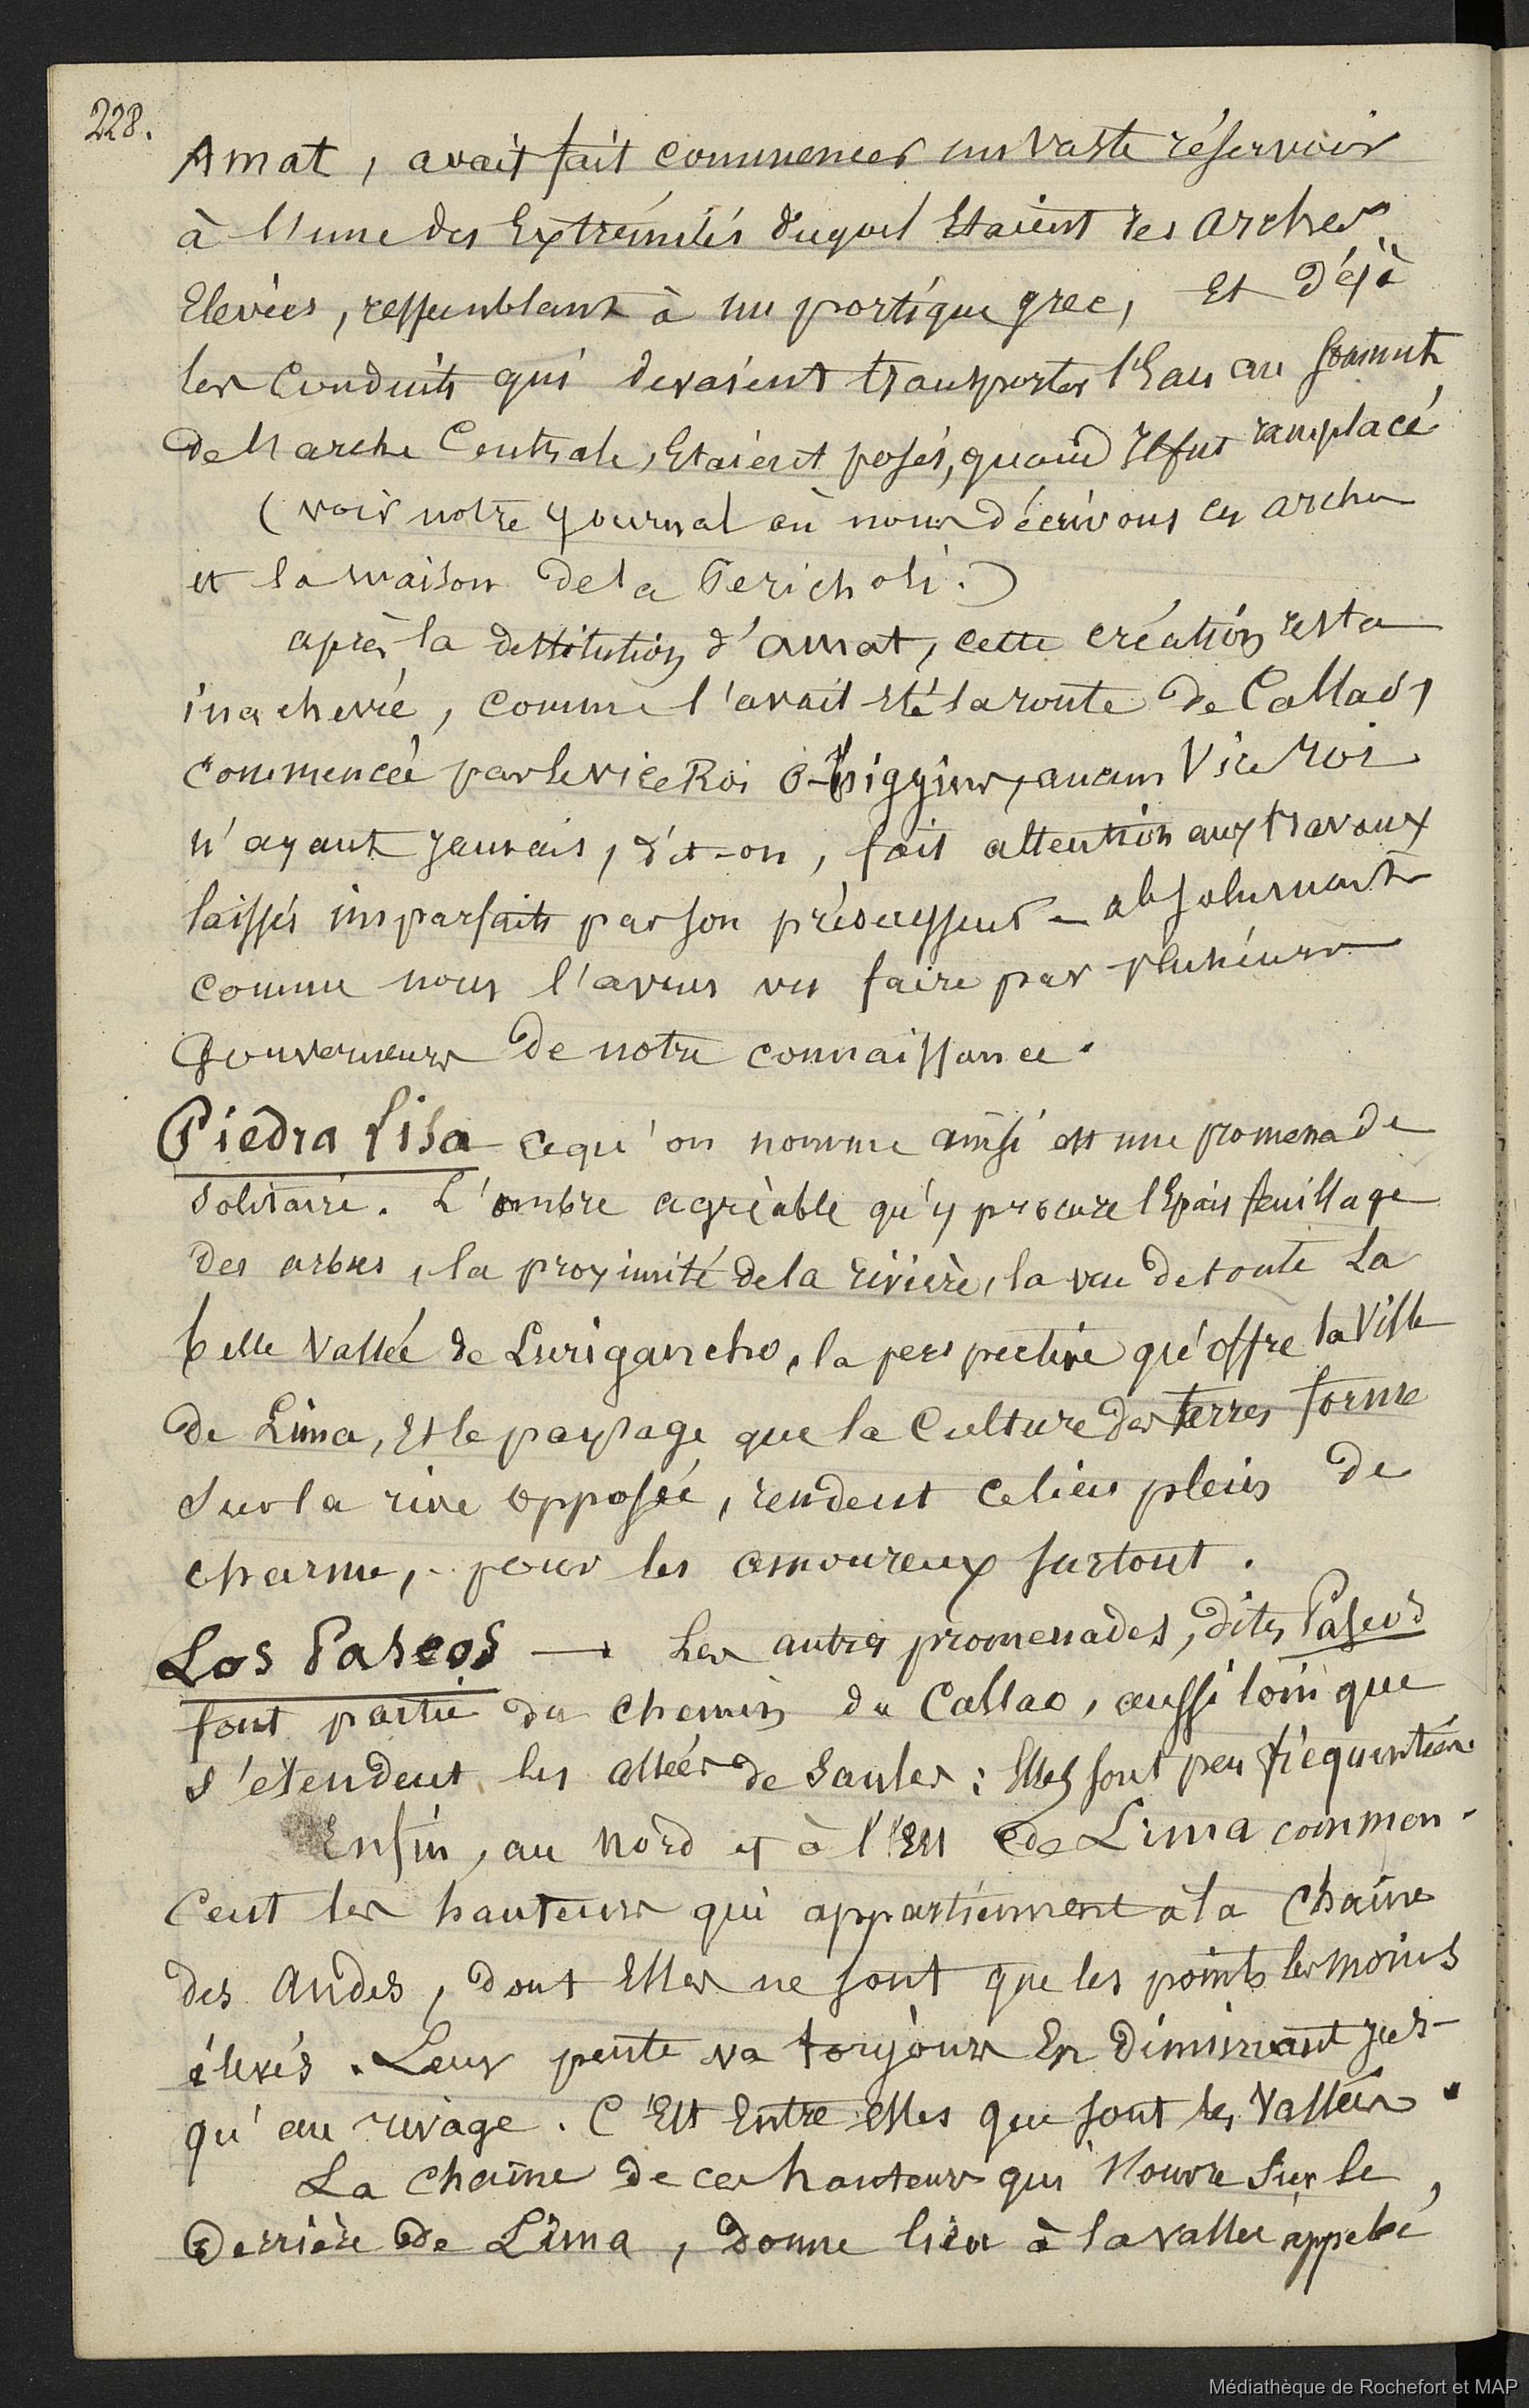 228.
Amat, avait fait commencer un vaste réservoir
à l'une des Extrémités duquel Etaient des arches
Elevées, ressemblant à un portique grec, Et déjà
les Conduits qui devaient transporter l'Eau au sommet
de l'arche Centrale, Etaient posés, quand Il fut ramplacé
(voir notre Journal où nous décrivons ces arches
et la maison de la Pericholi.)
après la destitution d'amat, cette création resta
inachevée, comme l'avait Eté la route de Callao,
commencée par le vice Roi O-higgins, aucun Vice Roi
n'ayant jamais, dit-on, fait attention aux travaux
laissés imparfaits par son prédécesseur - absolument
comme nous l'avons vu faire par plusieurs
Gouverneurs de notre connaissance.
Piedra lisa ce qu'on nomme ainsi est une promenade
solitaire. L'ombre agréable qu'y procure l'Epais feuillage
des arbres, la proximité de la rivière, la vue de toute la
belle Vallée de Lurigancho, la perspective qu'offre la Ville
de Lima, Et le paysage que la Culture des terres forme
sur la rive opposée, rendent ce lieu plein de
charme, - pour les amoureux surtout.
Los Paseos — Les autres promenades, dites Paseos
font partie du chemin du Callao, aussi loin que
s'étendent les allées de Saules ; Elles sont peu fréquentées.
Enfin, au nord et à l'Est de Lima commen-
cent les hauteurs qui appartiennent à la chaîne
des Andes, dont Elles ne sont que les points les moins
élevés. Leur pente va toujours En diminuant jus-
qu'au rivage. C'Est Entre Elles que sont les Vallées.
La chaîne de ces hauteurs qui s'ouvre sur le
derrière de Lima, donne lieu à la vallée appelée